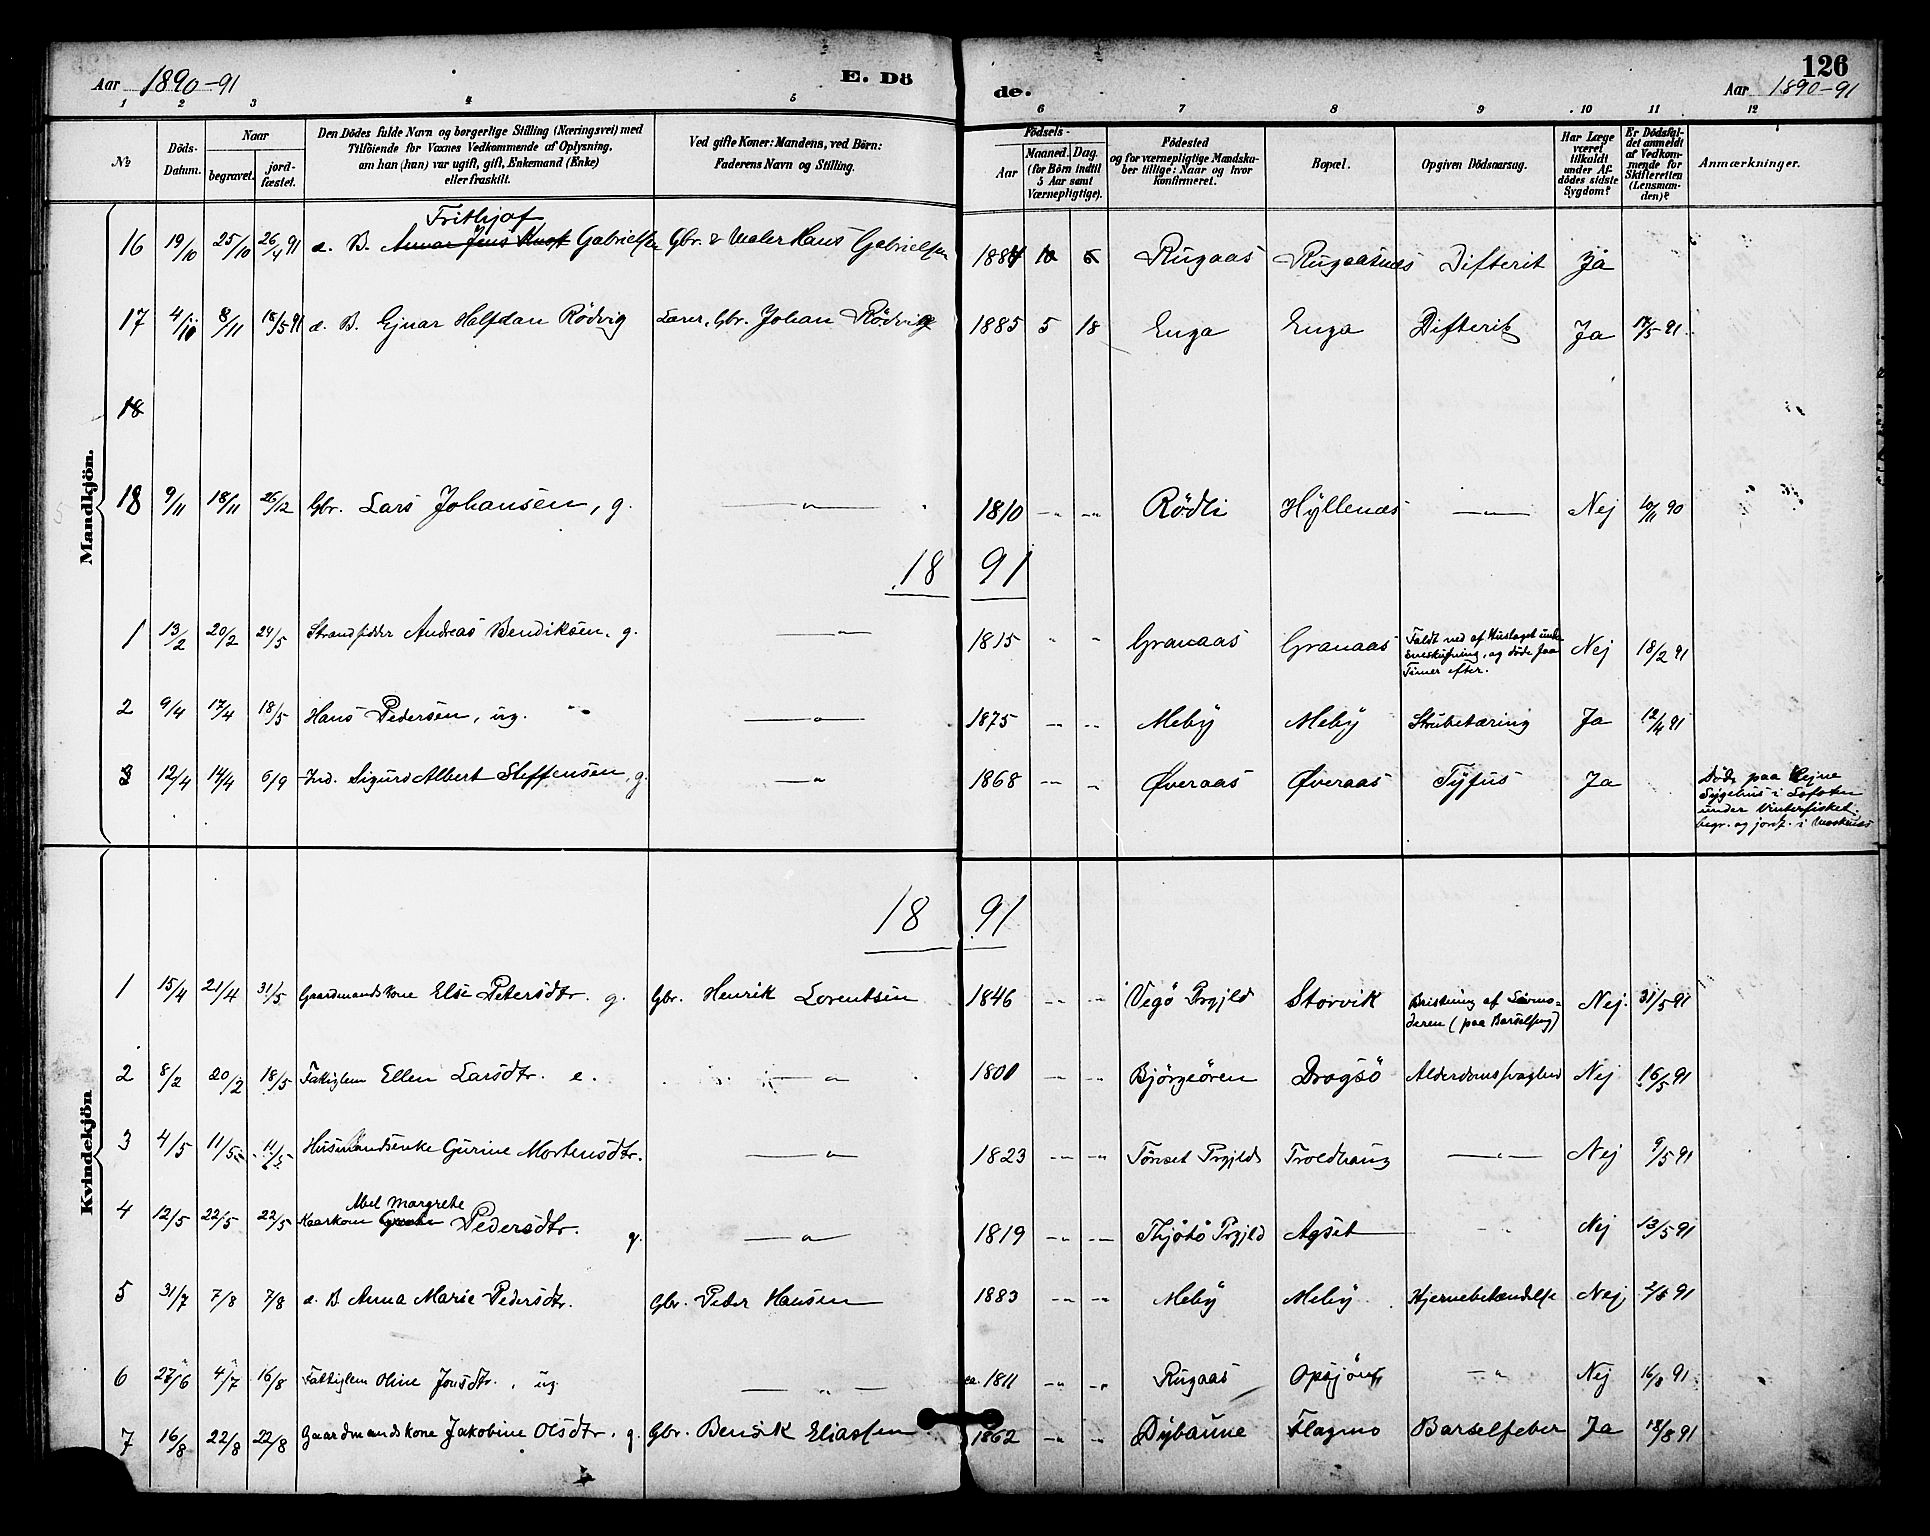 Aar 1890-91 E. Dö de. 126
Aar 1890-91
1 2 3 4 5 6 7 8 9 10 11 12
No Döds-Datum. Naar begravet. jord-fæstet. Den Dödes fulde Navn og borgerlige Stilling (Næringsvei) med Tilföiende for Voxnes Vedkommende af Oplysning, om han (hun) var ugift, gift, Enkemand (Enke) eller fraskilt. Ved gifte Koner: Mandens, ved Börn: Faderens Navn og Stilling. Födsels- Aar Maaned. Dag. (for Börn indtil 5 Aar samt Værnepligtige). Födested og for værnepligtige Mandskaber tillige: Naar og hvor konfirmeret. Bopæl. Opgiven Dödsaarsag. Har Læge været tilkaldt under Afdödes sidste Sygdom? Er Dödsfaldet anmeldt af Vedkommende for Skifteretten (Lensmanden)? Anmærkninger.
Mandkjön.
Frithjof
16 19/10 25/10 26/4 91 d. B. Gabrielsen Gbr. & Maler Hans Gabrielsen 1884 10 6 Rugaas Rugaasnæs Difterit Ja
17 4/10 8/11 18/5 91 d. B. Ejnar Halfdan Rödvig Lærer, Gbr. Johan Rödvig 1885 5 18 Enga Enga Difterit Ja 17/5 91.
18
18 9/11 18/11 26/12 Gbr. Lars Johansen, g. —„— 1810 -„- -„- Rödli Hÿllenæs —„— Nej 10/11 90
18 91
1 13/2 20/2 24/5 Strandsidder Andreas Bendiksen, g. —„— 1815 „ „ Granaas Granaas Faldt ned af Hustaget under
Sneskufning, og döde faa
Timer efter. Nej 18/2 91
2 9/4 17/4 18/5 Hans Pedersen, ug. —„— 1875 -„- -„- Mebÿ Mebÿ Strubetæring Ja 12/4 91
3 12/4 14/4 6/9 Ind. Sigurd Albert Steffensen, g. —„ 1868 -„- „ Øveraas Øveraas Tÿfus Ja Döde paa Rejne
Sygehus i Lofoten
under Vinterfisket.
begr. og jordf. i Moskenæs
Kvindekjön
18 91
1 15/4 21/4 31/5 Gaardmandskone Else Petersdtr. g. Gbr. Henrik Lorentsen 1846 -„- -„- Vegö Prgjld Storvik Bristning af Livmo-
deren (paa Barselseng) Nej. 31/5 91
2 8/2 20/2 18/5 Fattiglem Ellen Larsdtr. e. —„ 1801 -„- -„- Björgeören Dragsö Alderdomssvaghed Nej 16/5 91
3 4/5 11/5 11/5 Husmandsenke Gurine Mortensdtr. —„ 1823 -„- -„- Tönset Prgjld Troldhaug —„— Nej 9/5 91
Abel Margrete
4 12/5 22/5 22/5 Kaarkone Pedersdtr. g. —„ 1819 -„- -„- Thjötö Prgjld Agset „ Nej 13/5 91
5 31/7 7/8 7/8 d. B Anna Marie Pedersdtr. Gbr. Peter Hansen 1883 -„- -„- Mebÿ Mebÿ Hjernebetændelse Nej 2/8 91
6 27/6 4/7 16/8 Fattiglem Oline Jonsdtr., ug —„— ca. 1811 -„- -„ Rugaas Opsjön —„ Nej 16/8 91
7 16/8 22/8 22/8 Gaardmandskone Jakobine Olsdtr. g. Gbr. Bendik Eliassen 1862 -„ -„ Dÿbaune Flagmo Barselfeber Ja 18/8 91